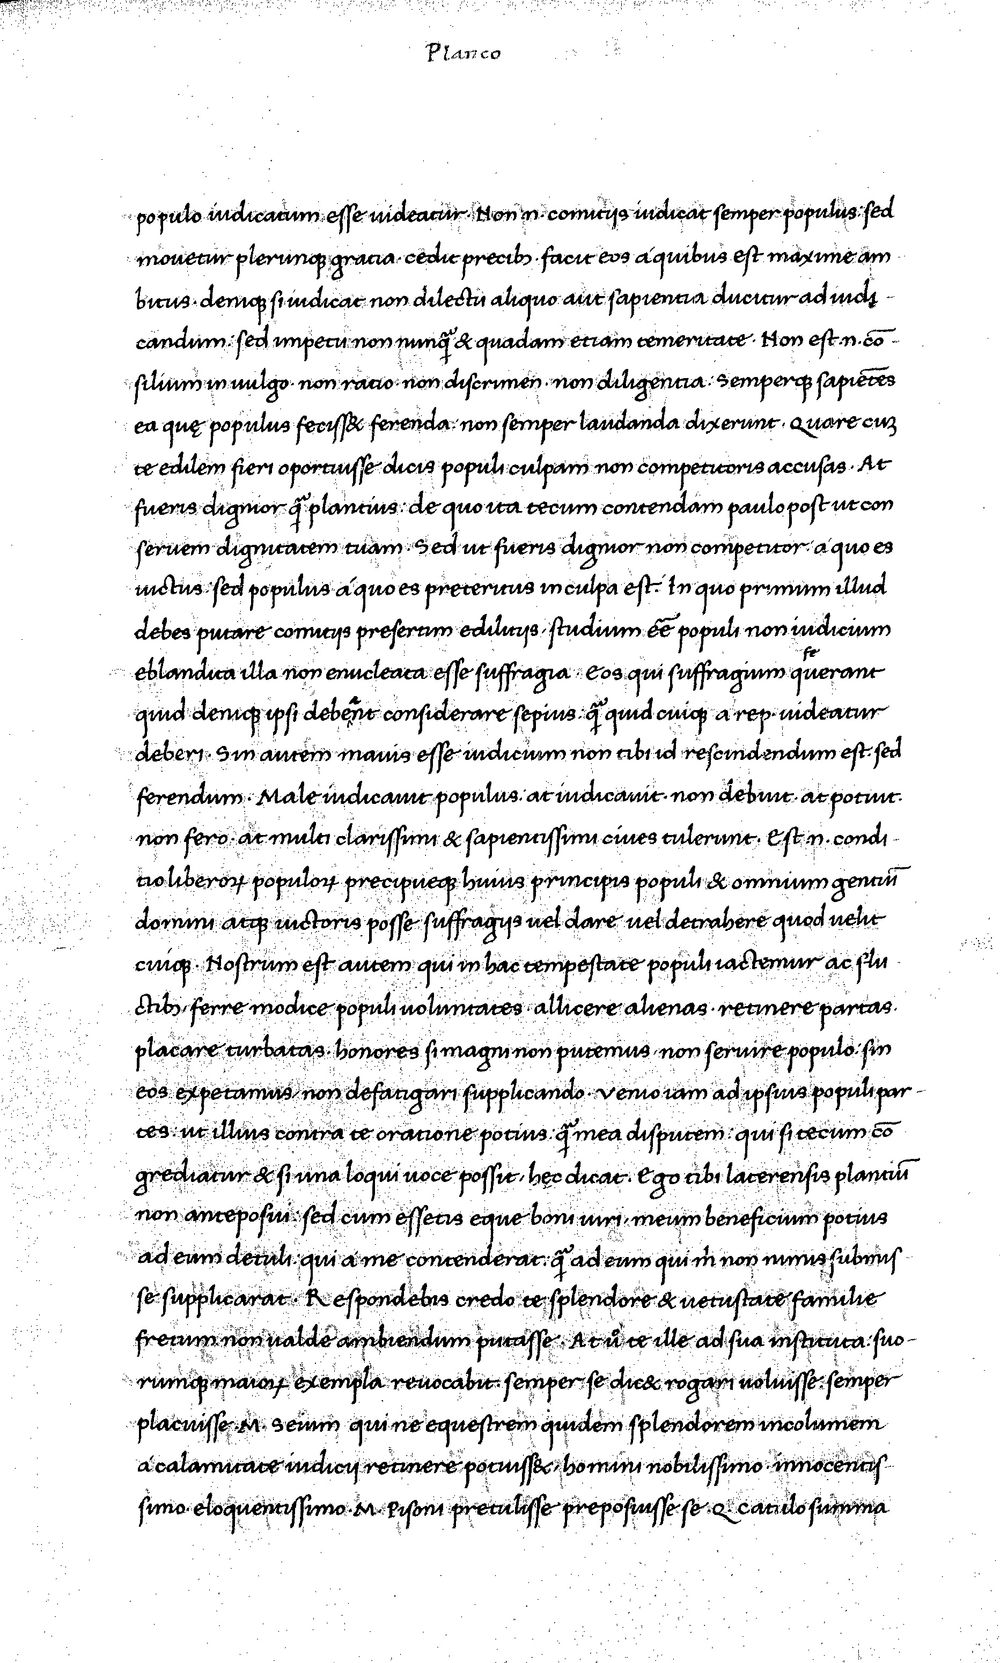 Planco
populo iudicatum esse uideatur. Non .n. comitijs iudicat semper populus: sed
mouetur plerunqȝ gratia. cedit precibȝ. facit eos a quibus est maxime am
bitus. deniqȝ si iudicat non dilectu aliquo aut sapientia ducitur ad iudi-
candum: sed impetu non nunqᷓ & quadam etiam temeritate. Non est .n. cō-
silium in uulgo. non ratio. non discrimen. non diligentia. Semperqȝ sapiētēs
ea quę populus feciss& ferenda: non semper laudanda dixerunt. Quare cuȝ
te edilem fieri oportuisse dicis populi culpam non competitoris accusas. At
fueris dignior qᷓ plantius: de quo ita tecum contendam paulo post ut con
seruem dignitatem tuam. Sed ut fueris dignior non competitor: a quo es
uictus: sed populus a quo es preteritus in culpa est. In quo primum illud
debes putare comitijs presertim edilitijs, studium ēē populi non iudicium
eblandita illa non enucleata esse suffragia. Eos qui suffragium feruerant
quid deniqȝ ipsi debeant considerare sepius: qᷓ quid cuiqȝ a rep. uideatur
deberi. Sin autem mauis esse iudicium non tibi id rescindendum est. sed
ferendum. Male iudicauit populus: at iudicauit. non debuit. at potuit.
non fero. at multi clarissimi & sapientissimi ciues tulerunt. Est .n. condi-
tio liberoꝝ populoꝝ precipueqȝ huius principis populi & omnium gentiū
domini atqȝ uictoris posse suffragijs uel dare uel detrahere quod uelit
cuiqȝ. Nostrum est autem qui in hac tempestate populi iactemur ac flu-
ctibȝ, ferre modice populi uoluntates. allicere alienas. retinere partas.
placare turbatas. honores si magni non putemus. non seruire populo: sin
eos expetamus, non defatigari supplicando. Venio iam ad ipsius populi par-
tes: ut illius contra te oratione potius qᷓ mea disputem: qui si tecum cō
grediatur & si una loqui uoce possit, hęc dicat. Ego tibi laterensis plantiū
non anteposui: sed cum essetis eque boni uiri, meum beneficium potius
ad eum detuli qui a me contenderat: qᷓ ad eum qui m̄ non nimis submis-
se supplicarat. Respondebis credo te splendore & uetustate familie
fretum non ualde ambiendum putasse. At ū te ille ad sua instituta: suo-
rumqȝ maioꝝ exempla reuocabit. semper se dic& rogari uoluisse: semper
placuisse. M. Seium qui ne equestrem quidem splendorem incolumem
a calamitate iudicij retinere potuiss&, homini nobilissimo. innocentis-
simo eloquentissimo. M. Pisoni pretulisse preposuisse se Q. Catulo summa